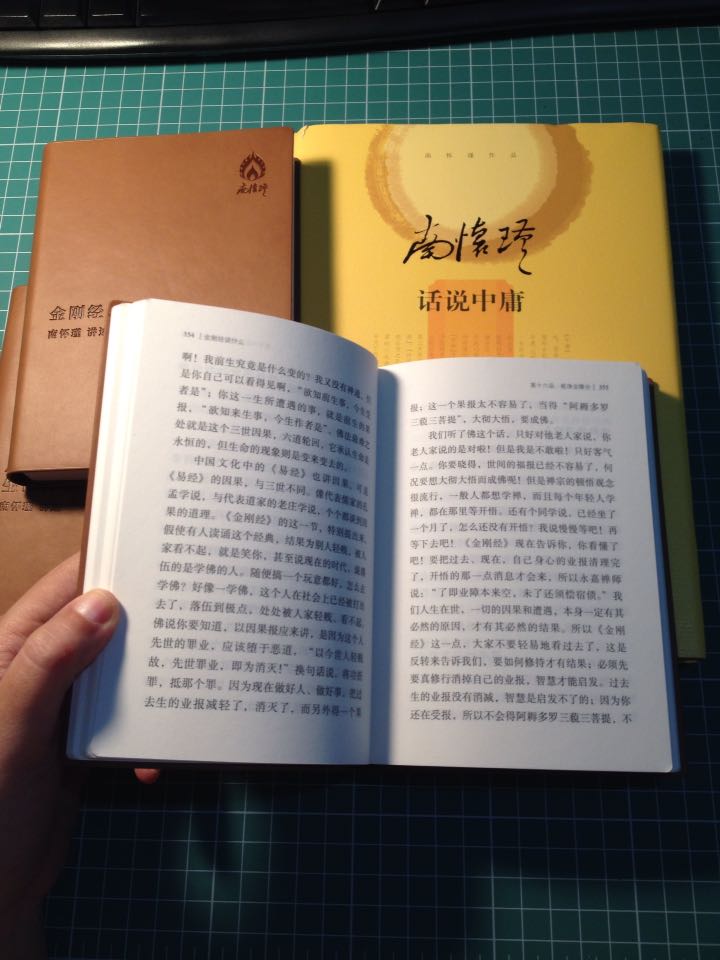 南怀瑾
金刚经
南怀瑾 讲述
南怀瑾作品
南懷瑾
话说中庸
354 | 金刚经说什么
啊！我前生究竟是什么变的？我又没有神通，但
是你自己可以看得见啊，“欲知前生事，今生受
者是”；你这一生所遭遇的事，就是前生的果
报，“欲知来生事，今生作者是”。佛法最难之
处就是这个三世因果，六道轮回，它承认生命是
永恒的，但生命的现象则是变来变去的。
中国文化中的《易经》也讲因果，可是
《易经》的因果，与三世不同。像代表儒家的孔
孟学说，与代表道家的老庄学说，个个都谈到因
果的道理。《金刚经》的这一节，特别提出来，
假使有人读诵这个经典，结果为别人轻贱，被人
家看不起，就是笑你，甚至说现在的时代，最落
伍的是学佛的人。随便搞一个玩意都好，怎么去
学佛？好像一学佛，这个人在社会上已经被打倒
去了，落伍到极点。处处被人家轻贱、看不起，
佛说你要知道，以因果报应来讲，是因为这个人
先世的罪业，应该堕于恶道，“以今世人轻贱
故，先世罪业，即为消灭！”换句话说，将功折
罪，抵那个罪。因为现在做好人、做好事，把过
去生的业报减轻了，消灭了，而另外得一个果
第十六品 能净业障分 | 355
报；这一个果报太不容易了，当得“阿耨多罗
三藐三菩提”，大彻大悟，要成佛。
我们听了佛这个话，只好对他老人家说，你
老人家说的是对啦！但是我是不敢啦！只好客气
一点。你要晓得，世间的福报已经不容易了，何
况要想大彻大悟而成佛呢！但是禅宗的顿悟观念
很流行，一般人都想学禅，而且每个年轻人学
禅，都在那里等开悟。还有个同学说，已经坐了
一个月了，怎么还没有开悟！我说慢慢等吧！再
等下去吧！《金刚经》现在告诉你，你看懂了
吧！要把过去、现在，自己身心的业报清理完
了，开悟的那一点消息才会来，所以永嘉禅师
说：“了即业障本来空，未了还须偿宿债。”我
们人生在世，一切的因果和遭遇，本身一定有其
必然的原因，才有其必然的结果。所以《金刚
经》这一点，大家不要轻易地看过去了，这是
反转来告诉我们，要如何修持才有结果；必须先
要真修行消掉自己的业报，智慧才能启发。过去
生的业报没有消减，智慧是启发不了的；因为你
还在受报，所以不会得阿耨多罗三藐三菩提，不